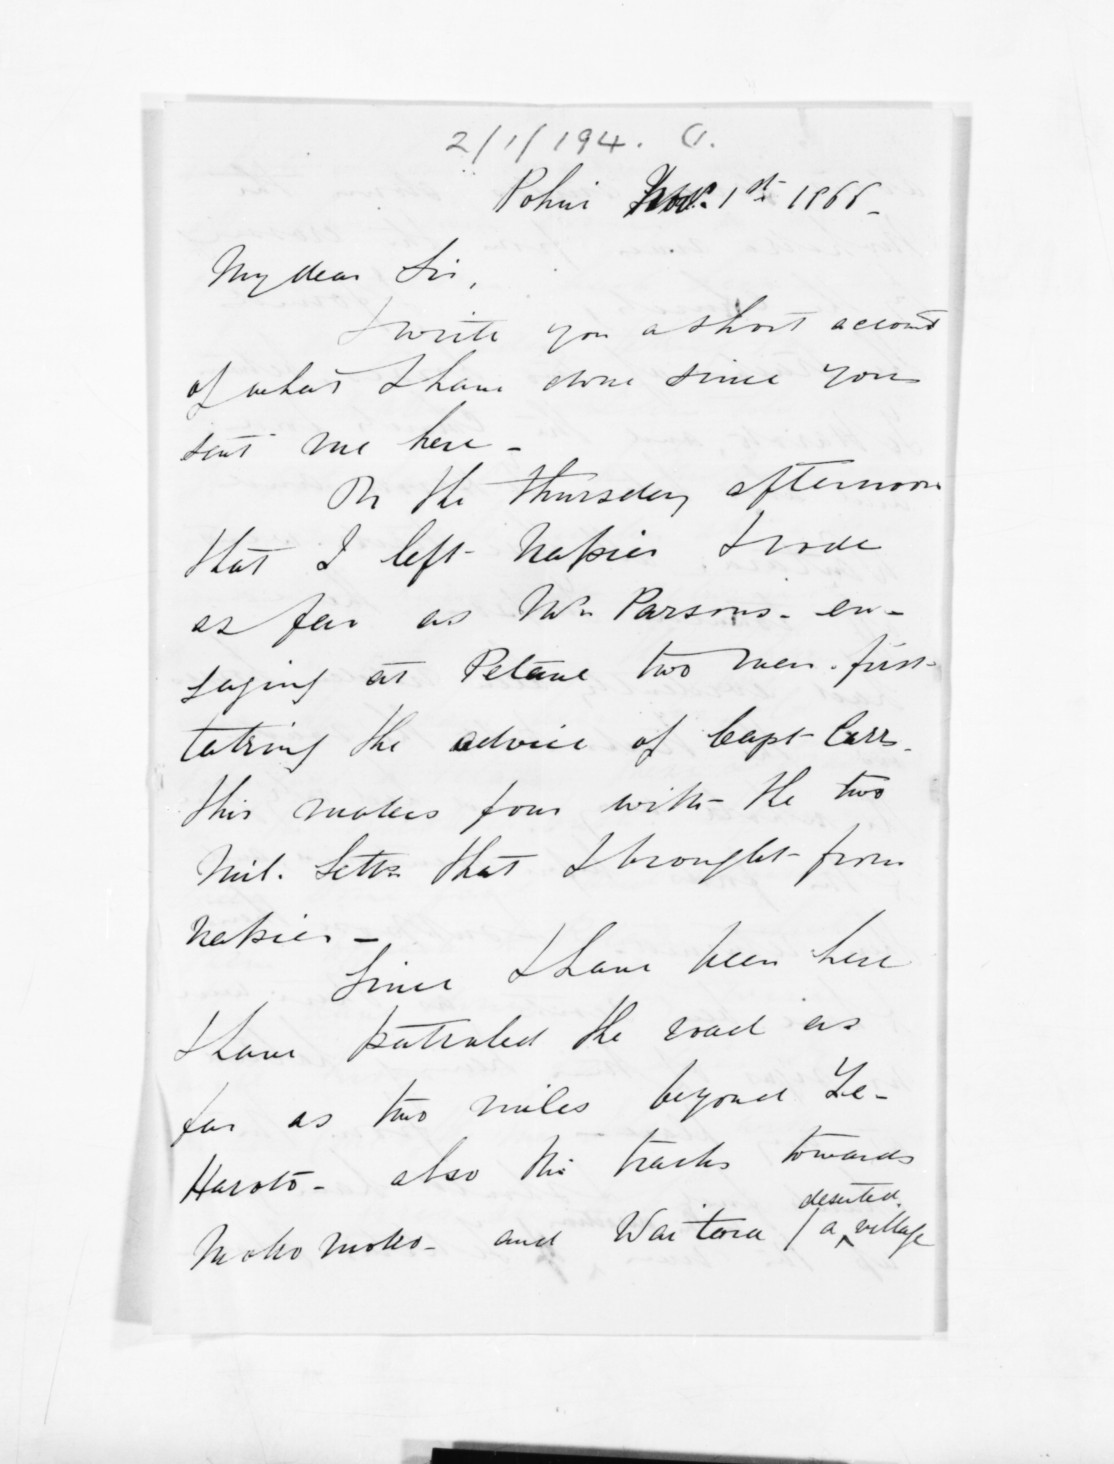 2/1/194. a.
Pohui Nov. 1st. 1866_
My dear Sir,
I write you a short account
of what I have done since you
sent me here_
On the thursday afternoon
that I left Napier I rode
as far as Wm Parsons_ en-
gaging at Petane two men. first
taking the advice of Capt Carr.
this makes four with the two
Mil. Settrs that I brought from
Napier_
Since I have been here
I have patroled the road as
far as two miles beyond Te-
Haroto_ also the tracks towards
Moko moko_ and Waitara / a deserted village